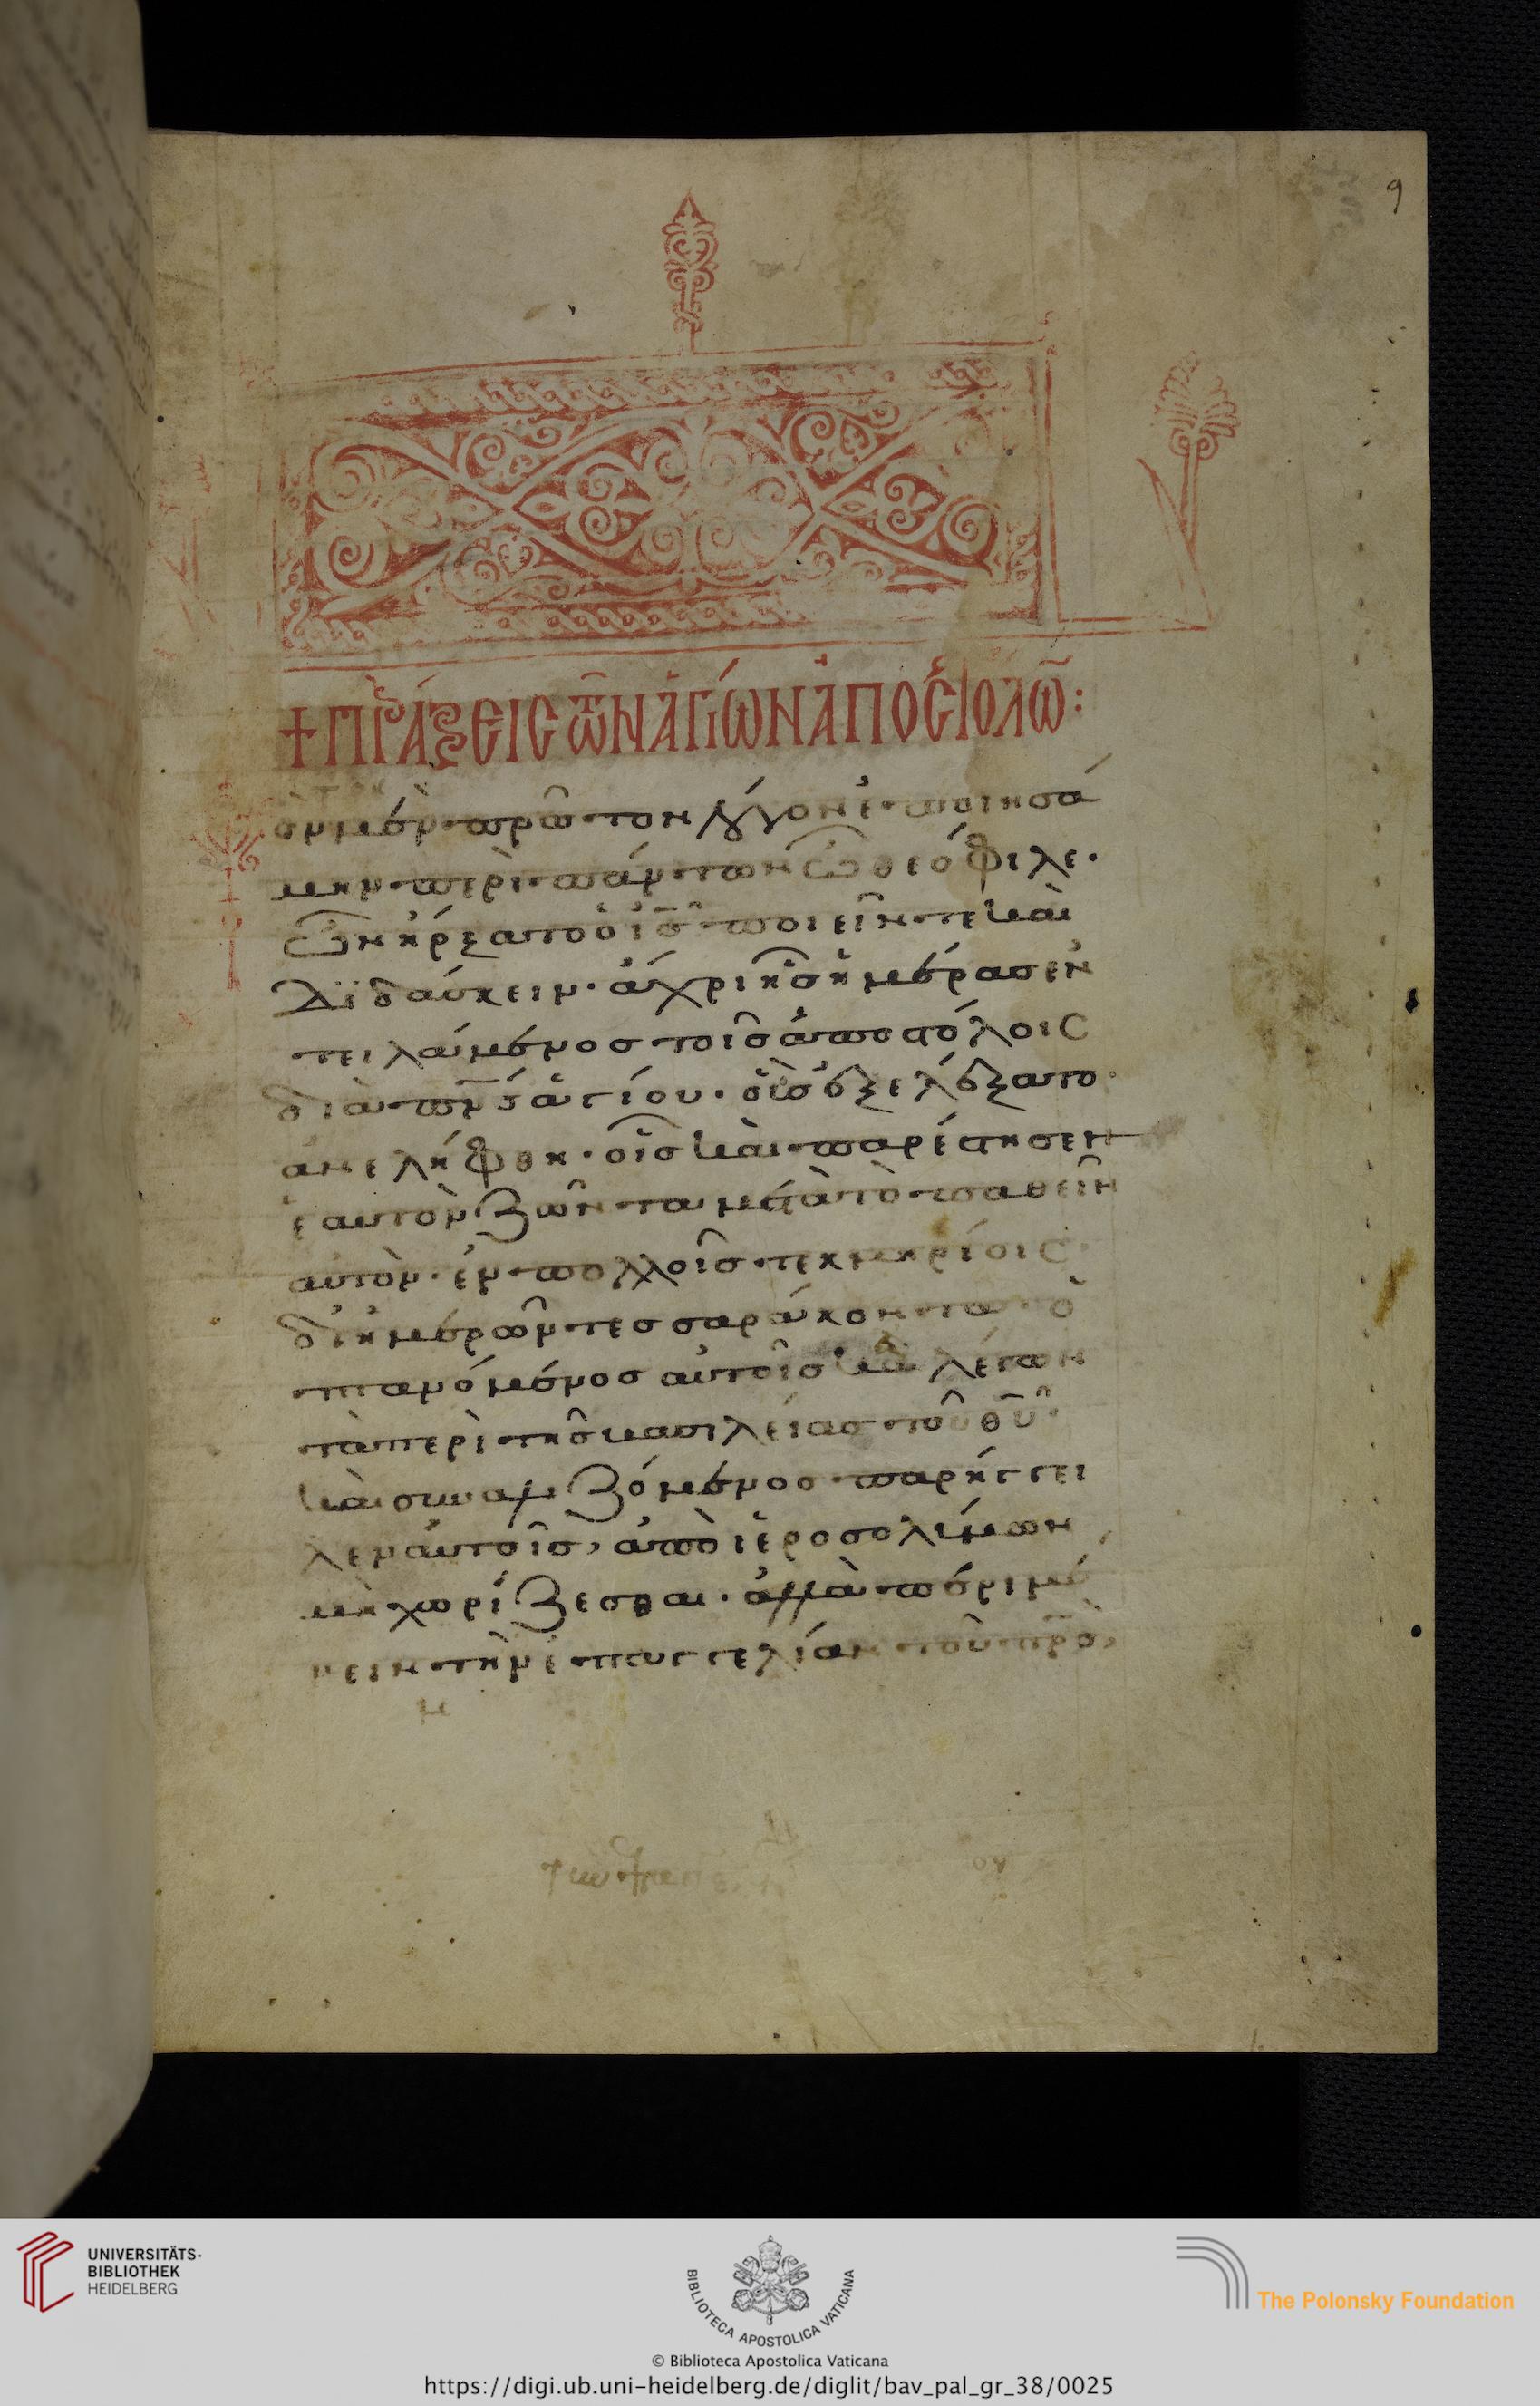 9
+ΠΡΆΞΕΙΣ ΤῶΝ ἉΓΊΩΝ ἈΠΟΣΤΌΛΩ:
ὸν μὲν πρῶτον λόγον ἐποιησά
μην περὶ πάντων ὦ θεόφιλε·
ὧν ἤρξατο ὁ ἰσ ποιεῖν τε καὶ
διδάσκειν· ἄχρι ἧσ ἡμέρασ ἐν
τειλάμενοσ τοῖσ ἀποστόλοισ
διὰ πνσ ἁγίου· οὓσ ἐξελέξατο
ἀνελήφθη· οἷσ καὶ παρέστησεν
ἑαυτὸν ζῶντα μετὰ τὸ παθεῖν
αὐτὸν· ἐν πολλοῖσ τεκμηρίοισ·
δι ἡμερῶν τεσσαράκοντα ὀ
πτανόμενοσ αὐτοῖσ καὶ λέγων
τὰ περὶ τῆσ βασιλείασ τοῦ θυ·
καὶ συναλιζόμενοσ παρήγγει
λεν αὐτοῖσ, ἀπὸ ἱεροσολύμων
μὴ χωρίζεσθαι· ἀλλὰ περιμέ
νειν τὴν ἐπαγγελίαν τοῦ πρσ,
UNIVERSITÄTS-
BIBLIOTHEK
HEIDELBERG
BIBLIOTECA APOSTOLICA VATICANA
The Polonsky Foundation
© Biblioteca Apostolica Vaticana
https://digi.ub.uni-heidelberg.de/diglit/bav_pal_gr_38/0025